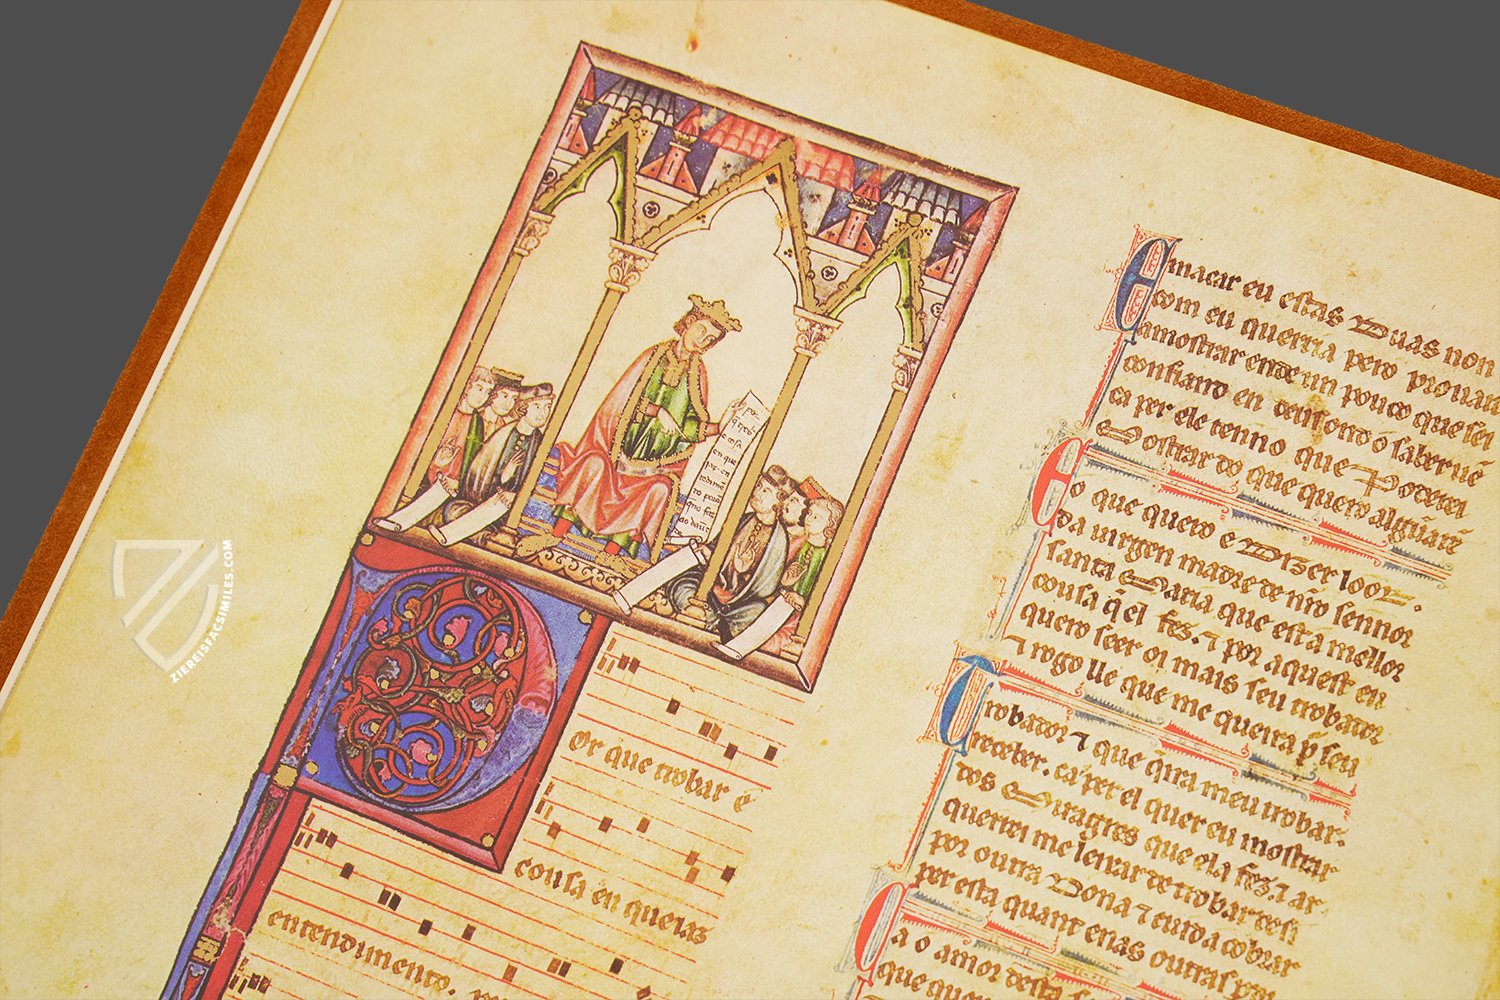 po
q trob
e cosa
en que
por en
or que trobar e
cousa en que ias
entendimento.
E macar eu estas duas non
com eu querria pero prouar
amostrar ende un pouco que sei
confiand en deus ond o saber uē
ca per ele tenno que poderei
Mostrar do que quero algūa rē
E o que quero e dizer loor.
da uirgen madre de nr̄o sennor
santa Maria que est a mellor
cousa q̄ el fez. ⁊ por aquest eu
quero seer oi mais seu trobador
⁊ rogo lle que me queira p̄ seu
Trobador ⁊ que q̄ira meu trobar.
receber. ca per el quer eu mostrar
dos Miragres que ela fez. ⁊ ar
querrei me leixar de trobar desi
por outra Dona ⁊ cuid a cobrar
per esta quant enas outras
Ca o amor desta
que quen
ZIEREISFACSIMILES.COM